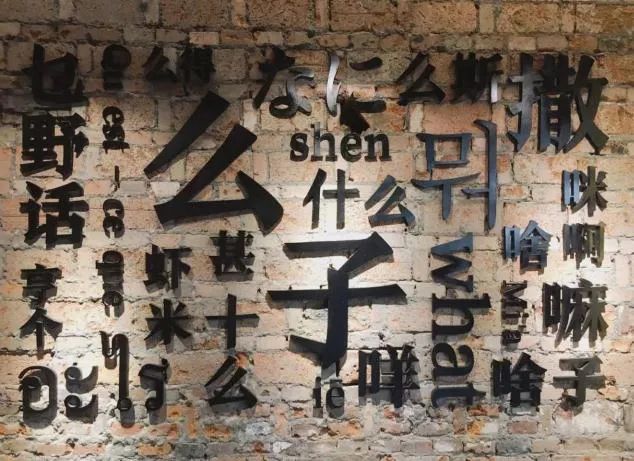 乜野话
么得
なに
么斯
撒
shén
什么
么子
뭐
咪啊
啥
嘛
虾米
甚
十么
享个
อะไร
咩
what
啥子